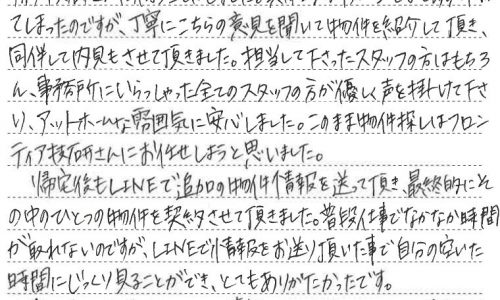 てしまったのですが、丁寧にこちらの意見を聞いて物件を紹介して頂き、
同伴して内見もさせて頂きました。担当して下さったスタッフの方はもちろ
ん、事務所にいらっしゃった全てのスタッフの方が優しく声を掛けて下さ
り、アットホームな雰囲気に安心しました。このまま物件探しはフロン
ティア技研さんにお任せしようと思いました。
帰宅後もLINEで追加の物件情報を送って頂き、最終的にそ
の中のひとつの物件を契約させて頂きました。普段仕事でなかなか時間
が取れないのですが、LINEで情報をお送り頂いた事で自分の空いた
時間にじっくり見ることができ、とてもありがたかったです。